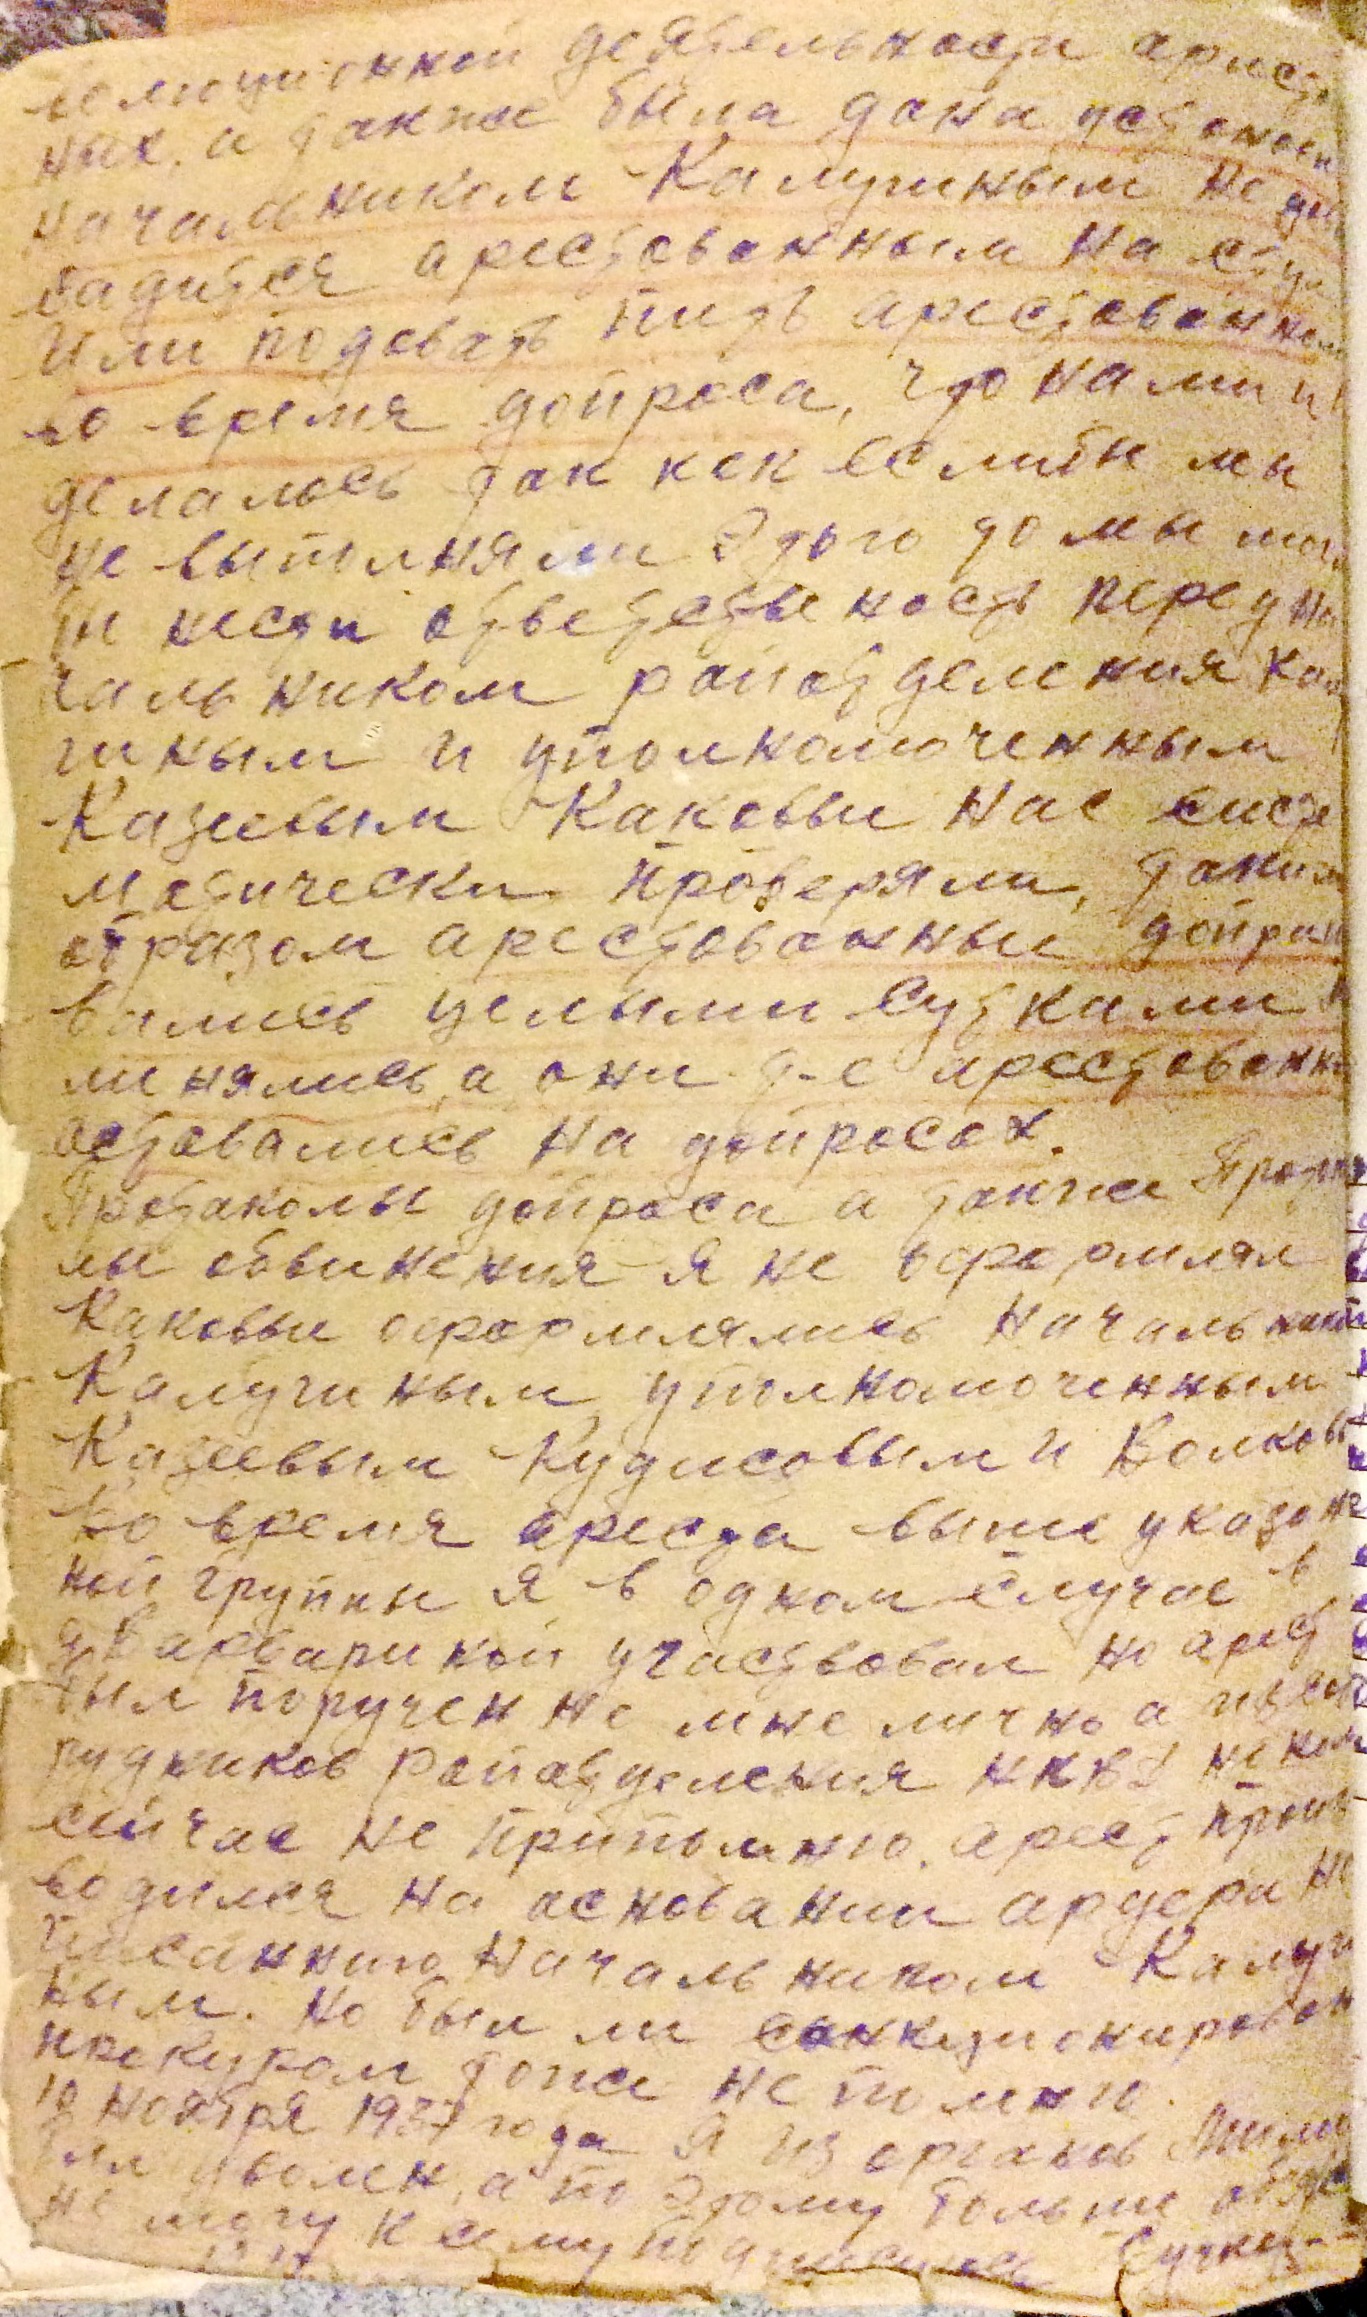 волюционной деятельности аресто
ных, а также была дана установ
начальником Калугиным не дав
садится арестованным на стул
или подовать пить арестованном
во время допроса, что нами и
делалось так как еслибы мы
не выполняли этого то мы мог
бы нести ответственость перед на
чальником райотделения Калу
гиным и уполномоченным
Казеевым Каковые нас систе
матически проверяли, таким
образом арестованные допраши
вались целыми сутками м
минялись, а они т-е арестованн
оставались на допросах.
Протаколы допроса а также Прото
лы обвинения я не оформлял
Каковые оформлялись Начальник
Калугиным, уполномоченным
Казеевым Кудисовым и Волков
Во время ареста выше указан
ной группы я в одном случае в
д. Варварикой участвовал но арест
был поручен не мне лично а из сот
рудников райотделения НКВД не ком
сейчас не припомню. арест произ
водился на основании ардера на
писанного Начальником Калуги
ным. Но был ли санкционирован
прокуром тоже не помню.
10 ноября 1937 года я из органов Мили
был уволен, а по этому больше
не могу к сему подписуюсь